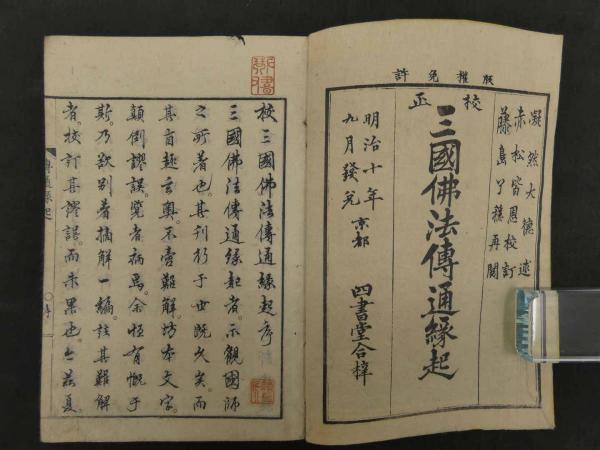 許免權版
校正
凝然大德述
赤松皆恩校訂
藤島了穩再閱
三國佛法傳通緣起
明治十年
九月發兌 京都 四書堂合梓
校三國佛法傳通緣起序
三國佛法傳通緣起者。示觀國師
之所著也。其刊行于世既久矣。而
其旨趣玄奧。不啻難解。坊本文字。
顛倒謬誤。覽者病焉。余恒有慨于
斯。乃欲別著摘解一編。設其難解
者。校訂其謬誤。而未果也。今茲夏。